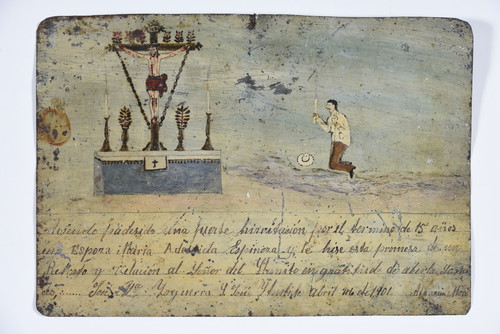 Haviendo padesido una fuerte hinrritación por el termino de 15 años
mi Espoza Maria Adelaida Espinoza y le hise esta promesa de un
Retrato y relacion al Señor del
en gratitud de aberla
José Ma. S. José Iturbide Abril 26 de 1901.